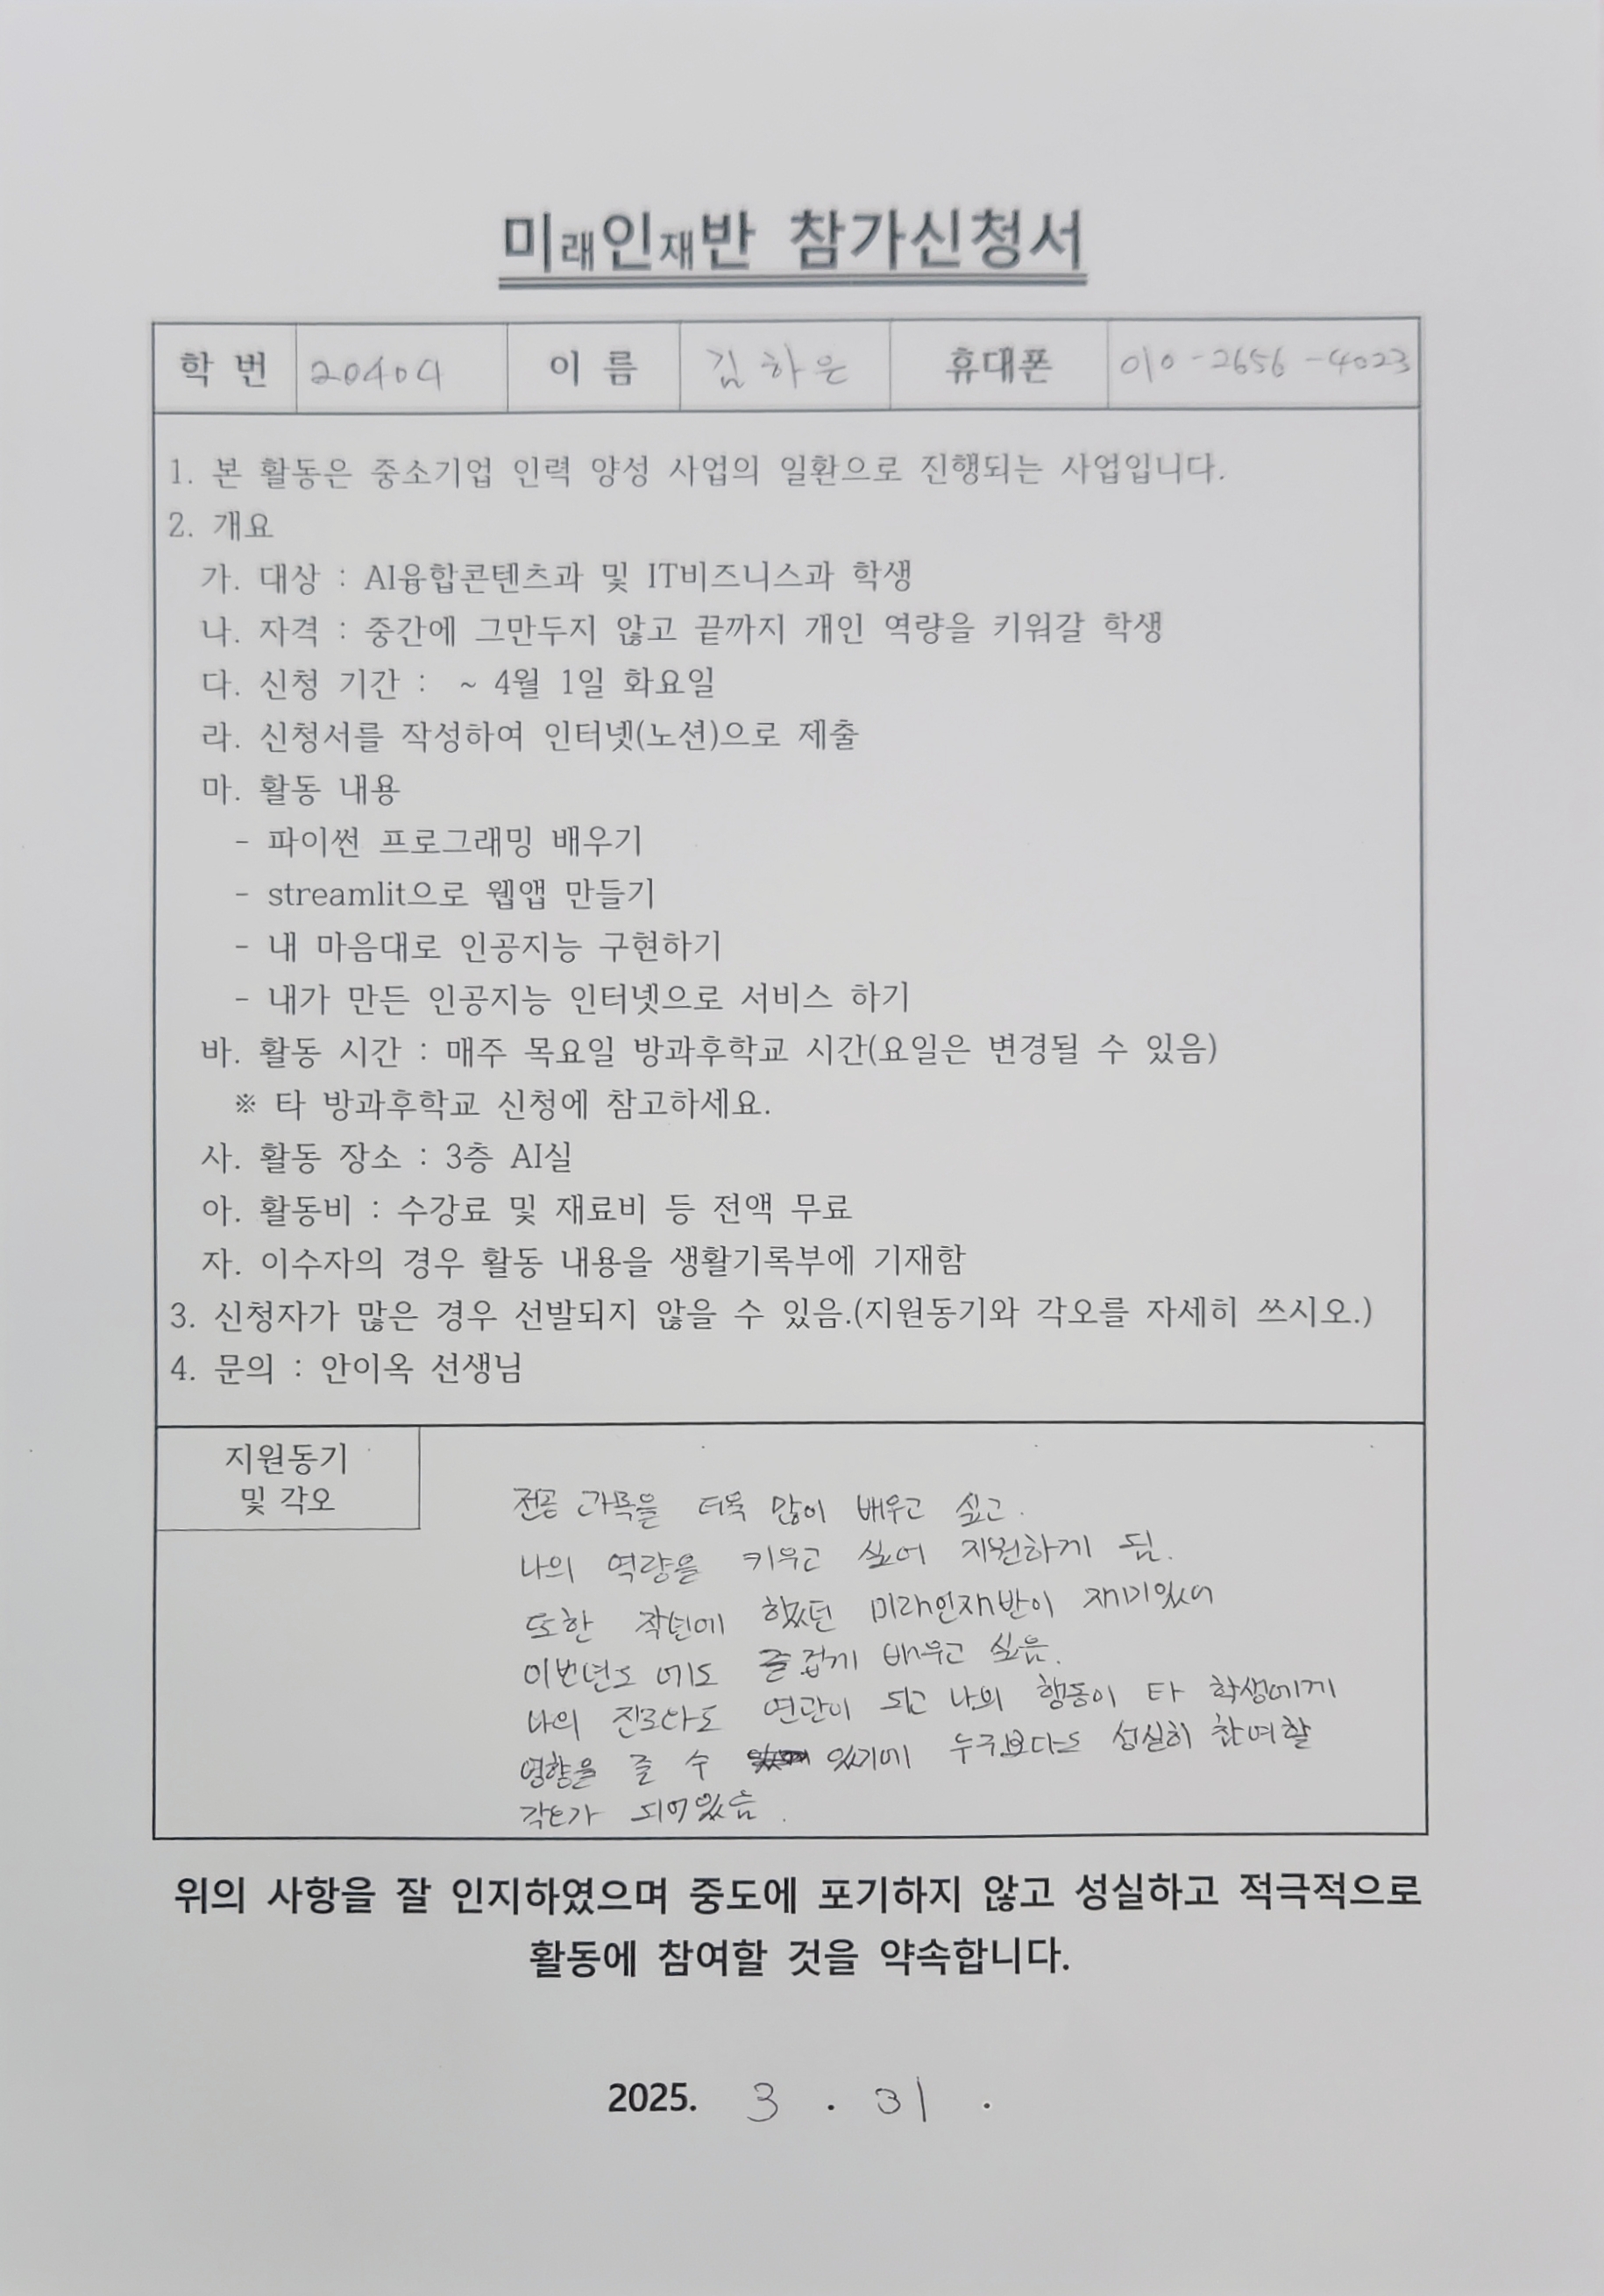 미래인재반 참가신청서
학 번 20404 이 름 김하은 휴대폰 010-2656-4023
1. 본 활동은 중소기업 인력 양성 사업의 일환으로 진행되는 사업입니다.
2. 개요
가. 대상 : AI융합콘텐츠과 및 IT비즈니스과 학생
나. 자격 : 중간에 그만두지 않고 끝까지 개인 역량을 키워갈 학생
다. 신청 기간 : ~ 4월 1일 화요일
라. 신청서를 작성하여 인터넷(노션)으로 제출
마. 활동 내용
- 파이썬 프로그래밍 배우기
- streamlit으로 웹앱 만들기
- 내 마음대로 인공지능 구현하기
- 내가 만든 인공지능 인터넷으로 서비스 하기
바. 활동 시간 : 매주 목요일 방과후학교 시간(요일은 변경될 수 있음)
※ 타 방과후학교 신청에 참고하세요.
사. 활동 장소 : 3층 AI실
아. 활동비 : 수강료 및 재료비 등 전액 무료
자. 이수자의 경우 활동 내용을 생활기록부에 기재함
3. 신청자가 많은 경우 선발되지 않을 수 있음.(지원동기와 각오를 자세히 쓰시오.)
4. 문의 : 안이옥 선생님
지원동기
및 각오
전공 과목을 더욱 많이 배우고 싶고.
나의 역량을 키우고 싶어 지원하게 됨.
또한 작년에 했던 미래인재반이 재미있어
이번년도 에도 즐겁게 배우고 싶음.
나의 진로와도 연관이 되고 나의 행동이 타 학생에게
영향을 줄 수 있기에 누구보다도 성실히 참여할
각오가 되어있음.
위의 사항을 잘 인지하였으며 중도에 포기하지 않고 성실하고 적극적으로
활동에 참여할 것을 약속합니다.
2025. 3 . 31 .